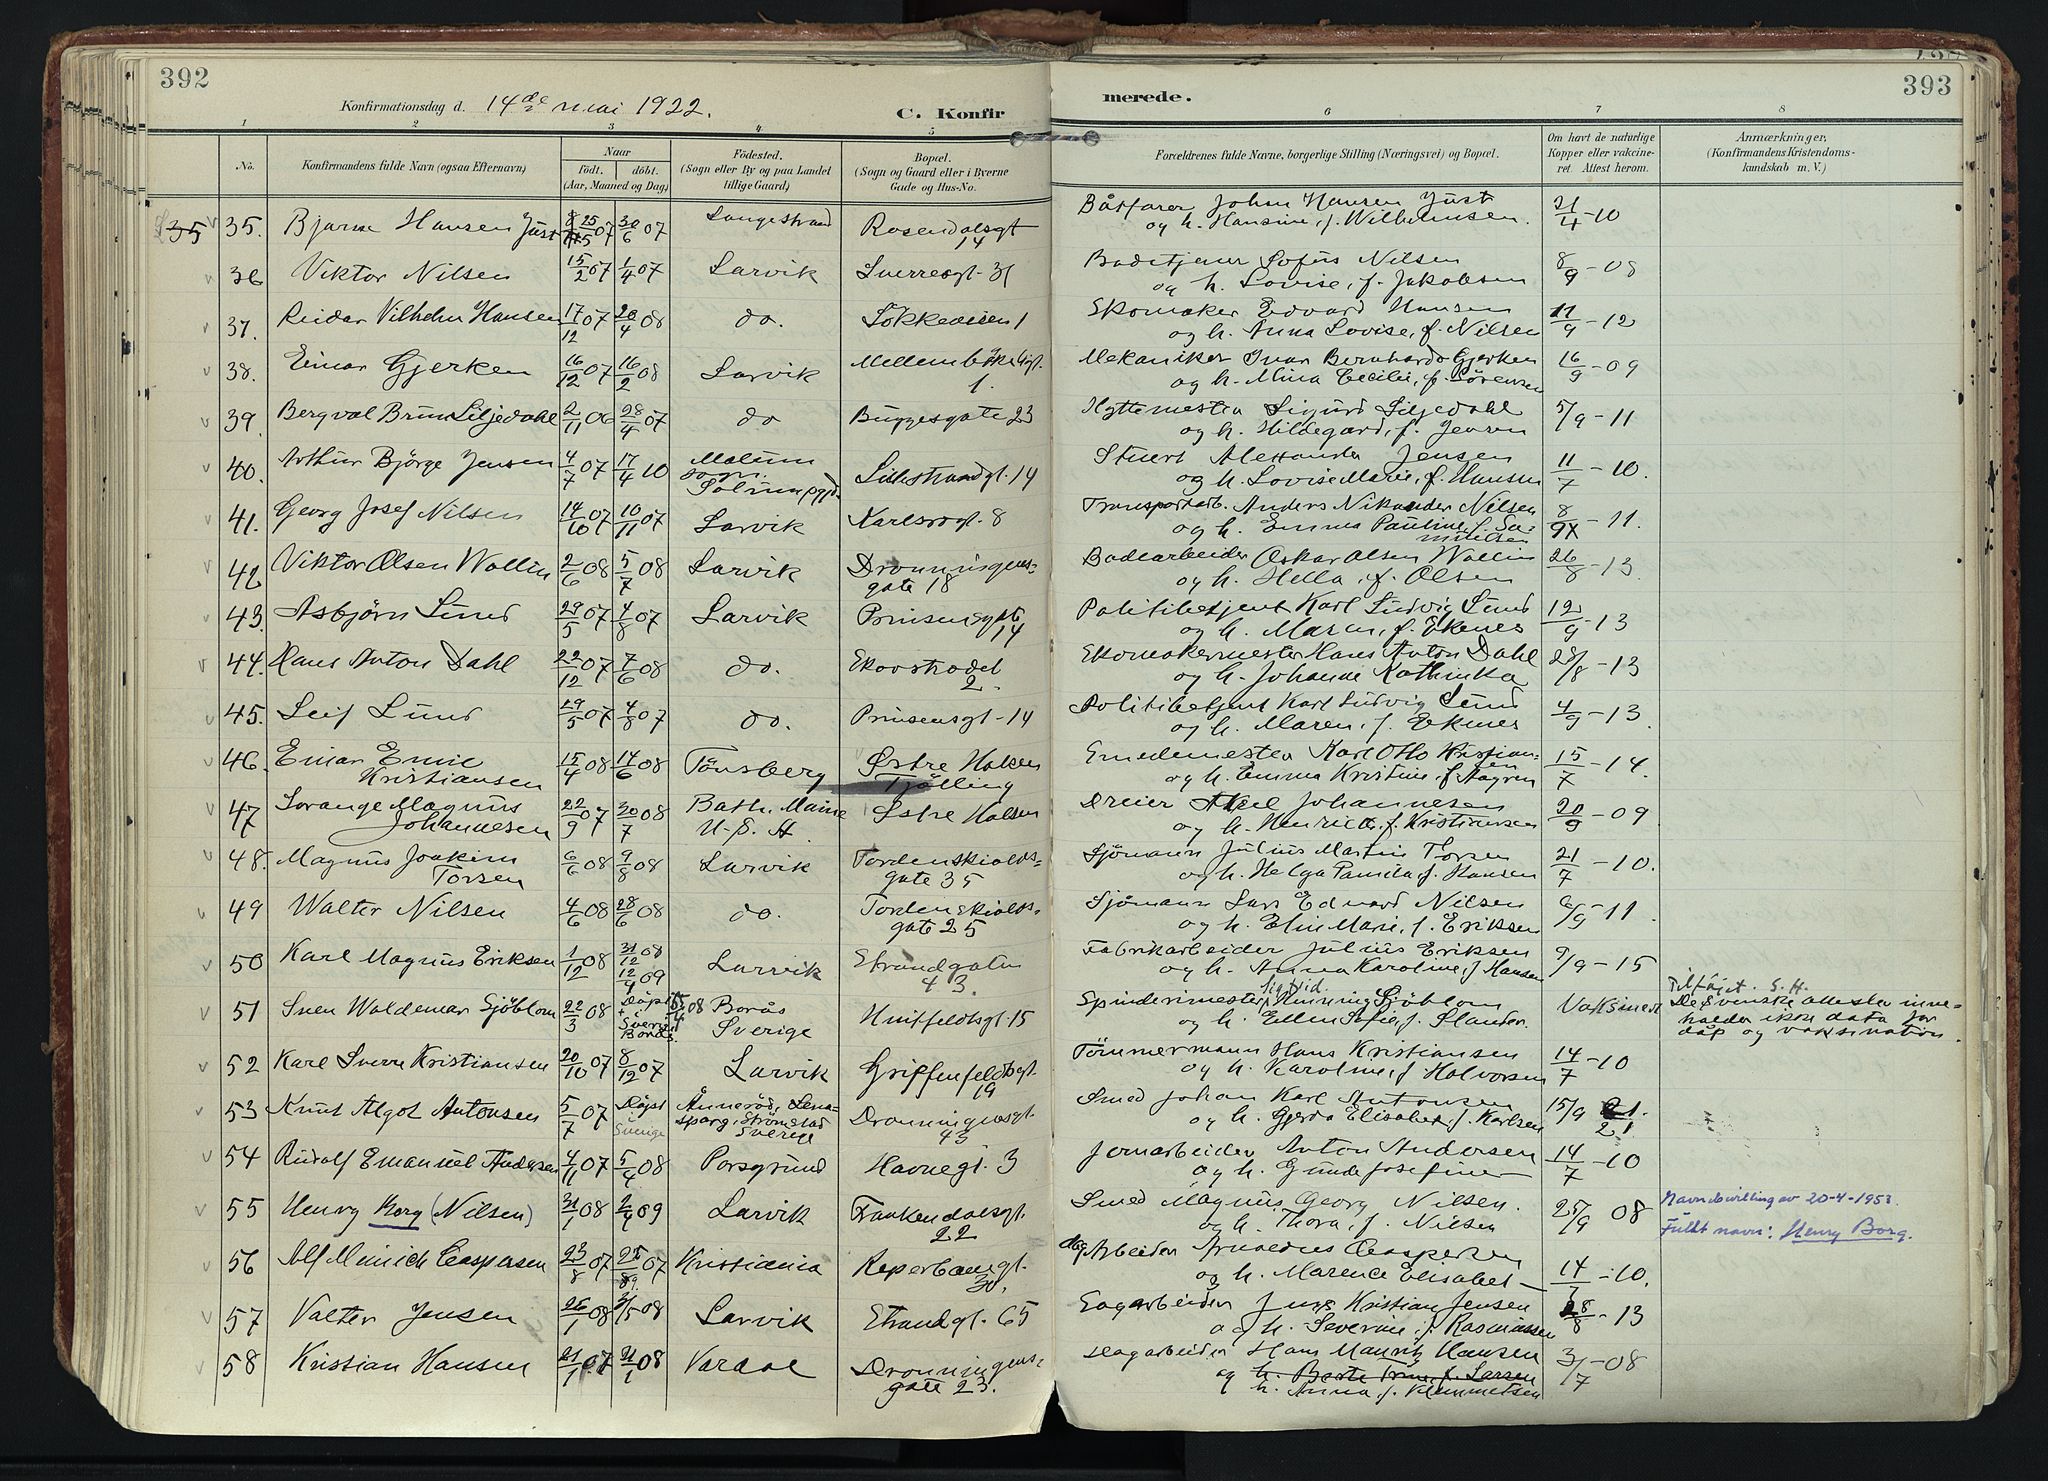 392
Konfirmationsdag d. 14de mai 1922.
C. Konfirmerede.
393
1 2 3 4 5 6 7 8
No.
Konfirmandens fulde Navn (ogsaa Efternavn)
Naar
Født. døbt.
(Aar, Maaned og Dag)
Födested.
(Sogn eller By og paa Landet
tillige Gaard)
Bopæl.
(Sogn og Gaard eller i Byerne
Gade og Hus-No.
Forældrenes fulde Navne, borgerlige Stilling (Næringsvei) og Bopæl.
Om havt de naturlige
Kopper eller vakcine-
ret. Attest herom.
Anmærkninger,
(Konfirmandens Kristendoms-
kundskab m. V.)
35. Bjarne Hansen Just 30/6 07 Langestrand Rosendalsgt 14
Båtfører Johan Hansen Just
og h. Hansine, f. Wilhelmsen. 21/4 - 10
36 Viktor Nilsen 15/2 07 1/4 07 Larvik Sverresgt. 31
Badetjener Sofus Nilsen
og h. Lovise, f. Jakobsen 8/9 - 08
37. Reidar Vilhelm Hansen 17/12 07 20/4 08 do.
Skomaker Edvard Hansen
og h. Anna Lovise, f. Nilsen 11/9 - 12
38. Einar Gjerken 16/12 07 16/2 08 Larvik 1.
Mekaniker Ivar Bernhard Gjerken
og h. Mina Cecilie, f. Sörensen 16/9 - 09
39. Bergval Brun Siljedahl 2/11 06 28/4 07 do Buggesgate 23
Hyttemester Sigurd Siljedahl
og h. Hildegard, f. Jensen 5/9 - 11
40. Arthur Björge Jensen 4/7 07 17/4 10 Melum sogn Solum pgjd. Lillestrandgt. 14
Stuert Alexander Jensen
og h. Lovise Marie, f. Hansen 11/7 - 10.
41. Georg Josef Nilsen 14/10 07 10/11 07 Larvik Karlsrogt. 8
Transportarb. Anders Nikander Nilsen
og h. Emma Pauline, f. Samuelsen - 11.
42 Viktor Olsen Wallin 2/6 08 5/7 08 Larvik Dronningens-
gate 18
Badearbeider Oskar Olsen Wallin
og h. Hella, f. Olsen 26/8 - 13.
43. Asbjörn Lund 29/5 07 4/8 07 Larvik Prinsensgate 14
Politibetjent Karl Ludvig Lund
og h. Maren, f. Ekenes 12/9 - 13
44. Hans Anton Dahl 22/12 07 7/6 08 do. Skovstradet 2.
Skomakermester Hans Anton Dahl
og h. Johanne Kathinka 28/8 - 13
45. Leif Lund 29/5 07 4/8 07 do. Prinsensgt - 14
Politibetjent Karl Ludvig Lund
og h. Maren, f. Ekenes 4/9 - 13.
46. Einar Emil Kristiansen 15/4 08 14/6 08 Tönsberg Østre Halsen Tjölling
Smedemester Karl Otto Kristiansen
og h. Emma Kristine, f. Aagren 15/7 - 14.
47 Lorange Magnus Johannesen 22/9 07 30/7 08 Bath. Maine U.S.A Østre Halsen
Dreier Axel Johannesen
og h. Henriette, f. Kristiansen 20/9 - 09
48. Magnus Joakim Torsen 6/6 08 9/8 08 Larvik Tordenskiolds-
gate 35
Sjömann Julius Martin Torsen
og h. Helga Pamila f. Hansen 21/7 - 10.
49 Walter Nilsen 4/6 08 28/6 08 do. Tordenskiolds-
gate 25
Sjömann Lars Edvard Nilsen
og h. Elin Marie, f. Eriksen - 11.
50 Karl Magnus Eriksen 1/12 08 31/12 08 12/4 09 Larvik Strandgaten 43.
Fabrikarbeider Julius Eriksen
og h. Anna Karoline, f. Hansen 9/9 - 15
51 Sven Waldemar Sjöblom 22/3 08 Döpt i Sverige Borås. Borås Sverige Huitfeldtsgt. 15
Spinderimester Henning Sigfrid. Sjöblom
og h. Ellen Sofie, f. Slander. Vaksinert
Tilföjet. S.H.
De svenske attester inne-
holder ikke data for
dåp og vaksination.
52 Karl Sverre Kristiansen 20/10 07 8/12 07 Larvik Griffenfeldtsgt. 19
Tömmermann Hans Kristiansen
og h. Karoline, f. Halvorsen 14/7 - 10
53 Knut Algot Antonsen 5/7 07 Döpt Sverige Strömstad Sverige Dronningensgt. 43
Smed Johan Karl Antonsen
og h. Gjerda Elisabet, f. Karlsen 15/9 21
54 Rudolf Emanuel Andersen 4/11 07 5/4 08 Porsgrund Havnegt. 3
Jernarbeider Anton Andersen
og h. Gunda Josefine 14/7 - 10
55 Henry Borg (Nilsen) 31/1 08 2/4 09 Larvik Frankendalsgt. 22
Smed Magnus Georg Nilsen.
og h. Thora, f. Nilsen 25/9 08
Navnebevilling av 20-4-1953.
Fullt navn: Henry Borg.
56 Alf Meinich Caspersen 23/8 07 Kristiania Reperbanegt. 30.
Arbeider Casperesen
og h. Marence Elisabet 14/7 - 10.
57 Valter Jensen 26/1 08 3/5 08 Larvik Strandgt. 65
Sagarbeider Jens Kristian Jensen
og h. Severine, f. Rasmussen 28/8 - 13
58 Kristian Hansen 07 08 Vardal Dronningens-
gate 23.
Hagarbeider Hans Mauritz Hansen
og h. Berte Trine, f. Larsen
h. Anna, f. Klemmetsen 3/7 - 08